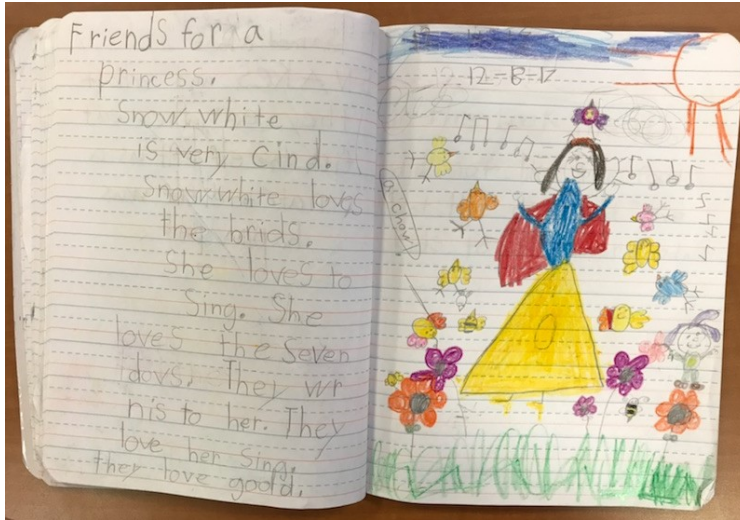 Friends for a
princess.
Snow white
is very cind.
Snow white loves
the brids.
She loves to
Sing. She
loves the seven
They wr
nis to her. They
love her Sing.
they love goold.
12 = B = 12